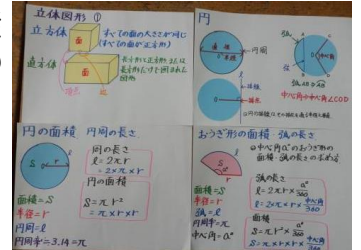 立体図形 ①
立方体
すべての面の大きさが同じ
(すべての面が正方形)
面
直方体
長方形と正方形 または
長方形だけで囲まれた
図形
面
円
直径
半径
円周
中心角
弧
中心角は∠COD
円の面積 円周の長さ
円周の長さ
ℓ=2πr
=2×π×r
円の面積
S=πr²
=π×r×r
S
r
面積=S
半径=r
円周=ℓ
円周率=3.14=π
おうぎ形の面積 弧の長さ
中心角a°のおうぎ形の
面積・弧の長さの求め方
弧の長さ
ℓ=2πr×a°/360
ℓ=2×π×r×中心角/360
面積
S=πr²×a°/360
S=π×r×r×中心角/360
S
r
ℓ
面積=S
半径=r
弧=ℓ
円周率=π
中心角=a°